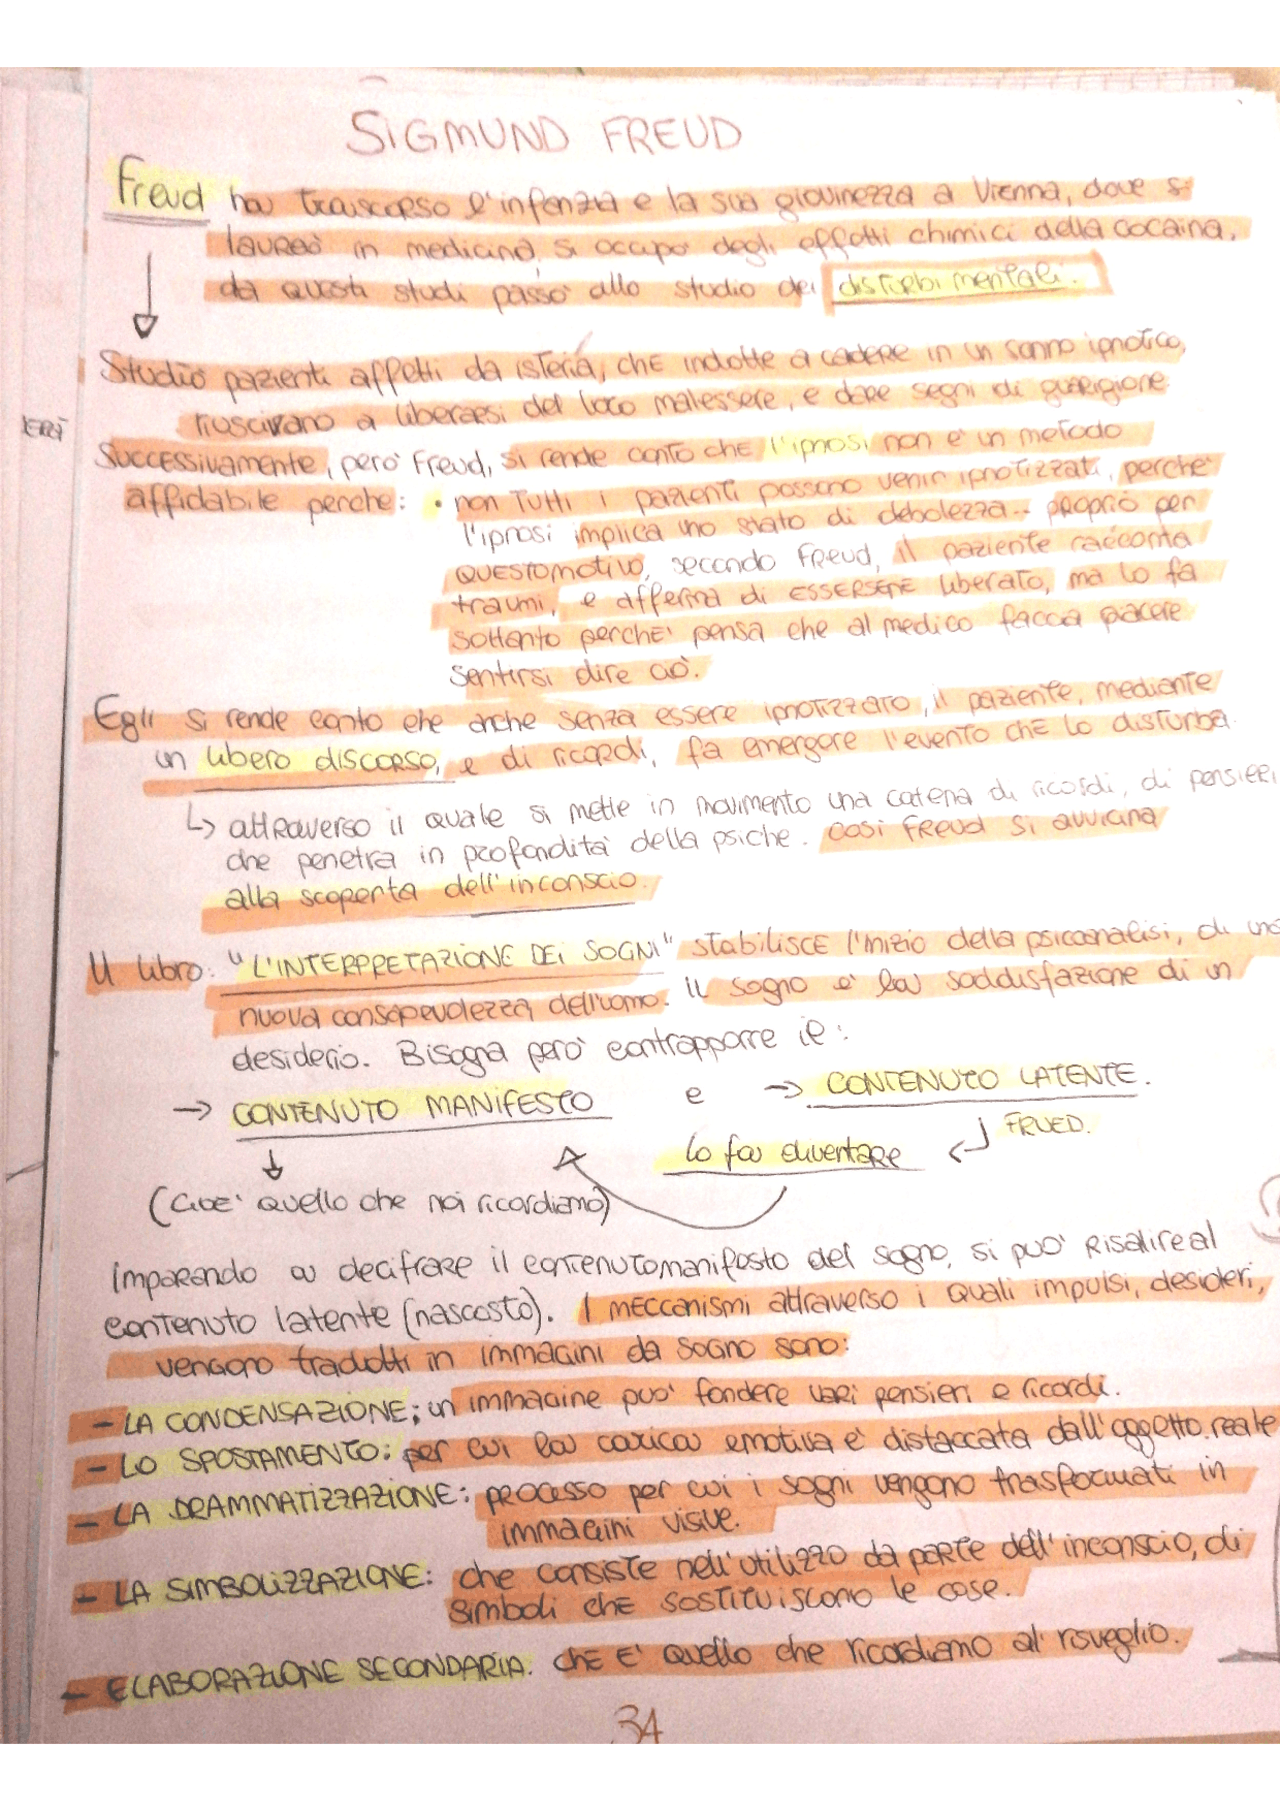 SIGMUND FREUD
Freud ha trascorso l'infanzia e la sua giovinezza a Vienna, dove si
laureò in medicina, si occupò degli effetti chimici della cocaina,
da questi studi passò allo studio dei disturbi mentali.
Studiò pazienti affetti da isteria, che indotte a cadere in un sonno ipnotico,
riuscivano a liberarsi del loro malessere, e dare segni di guarigione
Successivamente, però Freud, si rende conto che l'ipnosi non è un metodo
affidabile perche: • non tutti i pazienti possono venir ipnotizzati, perche'
l'ipnosi implica uno stato di debolezza.. proprio per
questo motivo, secondo Freud, il paziente racconta
traumi, e afferma di essersene liberato, ma lo fa
soltanto perche' pensa che al medico faccia piacere
sentirsi dire ciò.
Egli si rende conto che anche senza essere ipnotizzato, il paziente, mediante
un libero discorso, e di ricordi, fa emergere l'evento che lo disturba.
↳ attraverso il quale si mette in movimento una catena di ricordi, di pensieri
che penetra in profondità della psiche. così Freud si avvicina
alla scoperta dell'inconscio.
Il libro: "L'INTERPRETAZIONE DEI SOGNI" stabilisce l'inizio della psicoanalisi, di una
nuova consapevolezza dell'uomo. Il sogno e' la soddisfazione di un
desiderio. Bisogna però contrapporre il:
→ CONTENUTO MANIFESTO e → CONTENUTO LATENTE.
FRUED.
lo fa diventare
(cioe' quello che noi ricordiamo)
imparando a decifrare il contenuto manifesto del sogno, si può risalire al
contenuto latente (nascosto). I meccanismi attraverso i quali impulsi, desideri,
vengono tradotti in immagini da sogno sono:
- LA CONDENSAZIONE; un immagine puo' fondere vari pensieri e ricordi.
- LO SPOSTAMENTO: per cui la carica emotiva e' distaccata dall'oggetto reale
- LA DRAMMATIZZAZIONE: processo per cui i sogni vengono trasformati in
immagini visive.
- LA SIMBOLIZZAZIONE: che consiste nell'utilizzo da parte dell'inconscio, di
simboli che sostituiscono le cose.
- ELABORAZIONE SECONDARIA. che e' quello che ricordiamo al risveglio.
34